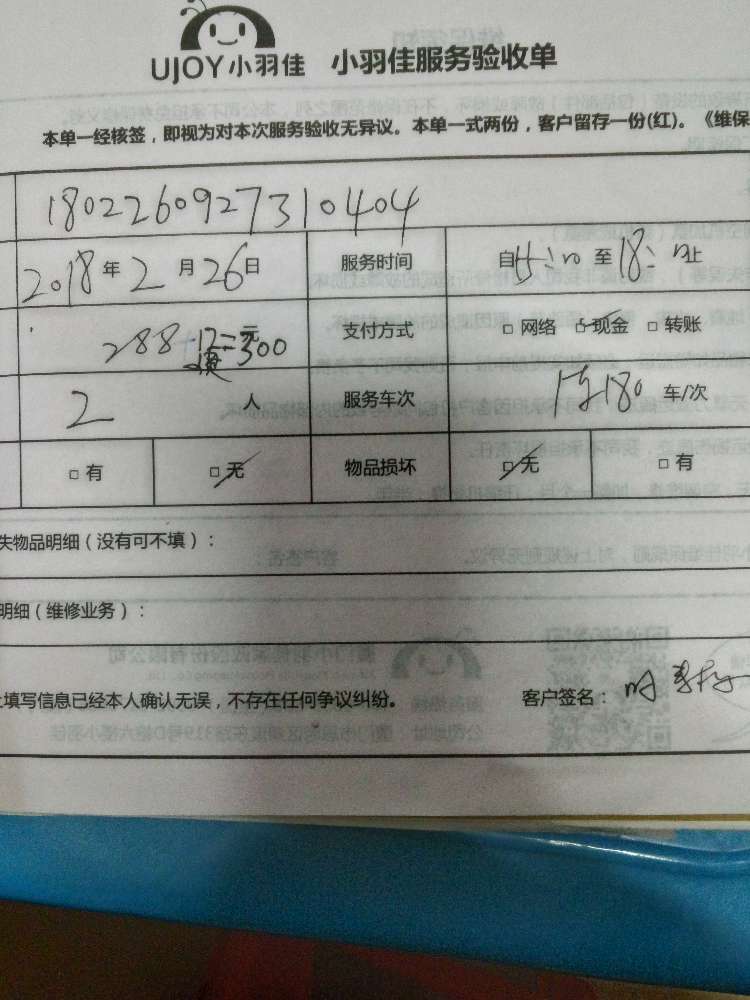 UJOY小羽佳 小羽佳服务验收单
本单一经核签，即视为对本次服务验收无异议。本单一式两份，客户留存一份(红)。《维保
180226092731 0404
2018年2月26日 服务时间 自 至18: 止
288+12=300 元 支付方式 □网络 □现金 □转账
2 人 服务车次 180 车/次
□有 □无 物品损坏 □无 □有
失物品明细（没有可不填）：
明细（维修业务）：
上填写信息已经本人确认无误，不存在任何争议纠纷。 客户签名：